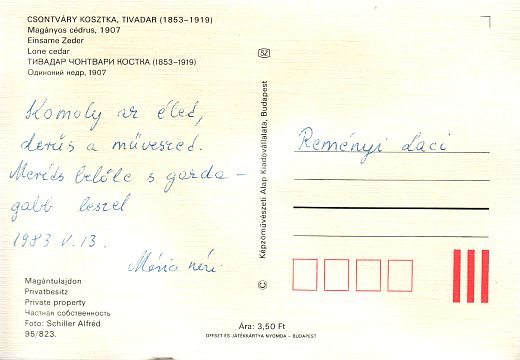 CSONTVÁRY KOSZTKA, TIVADAR (1853–1919)
Magányos cédrus, 1907
Einsame Zeder
Lone cedar
ТИВАДАР ЧОНТВАРИ КОСТКА (1853–1919)
Одинокий кедр, 1907
Komoly az éled,
derűs a művészed.
Meríts belőle s gazda-
gabb leszel
1983 V. 13.
Mária néni
Magántulajdon
Privatbesitz
Private property
Частная собственность
Foto: Schiller Alfréd
95/823.
Képzőművészeti Alap Kiadóvállalata, Budapest
©
Reményi Laci
Ára: 3,50 Ft
OFFSET ÉS JÁTÉKKÁRTYA NYOMDA – BUDAPEST